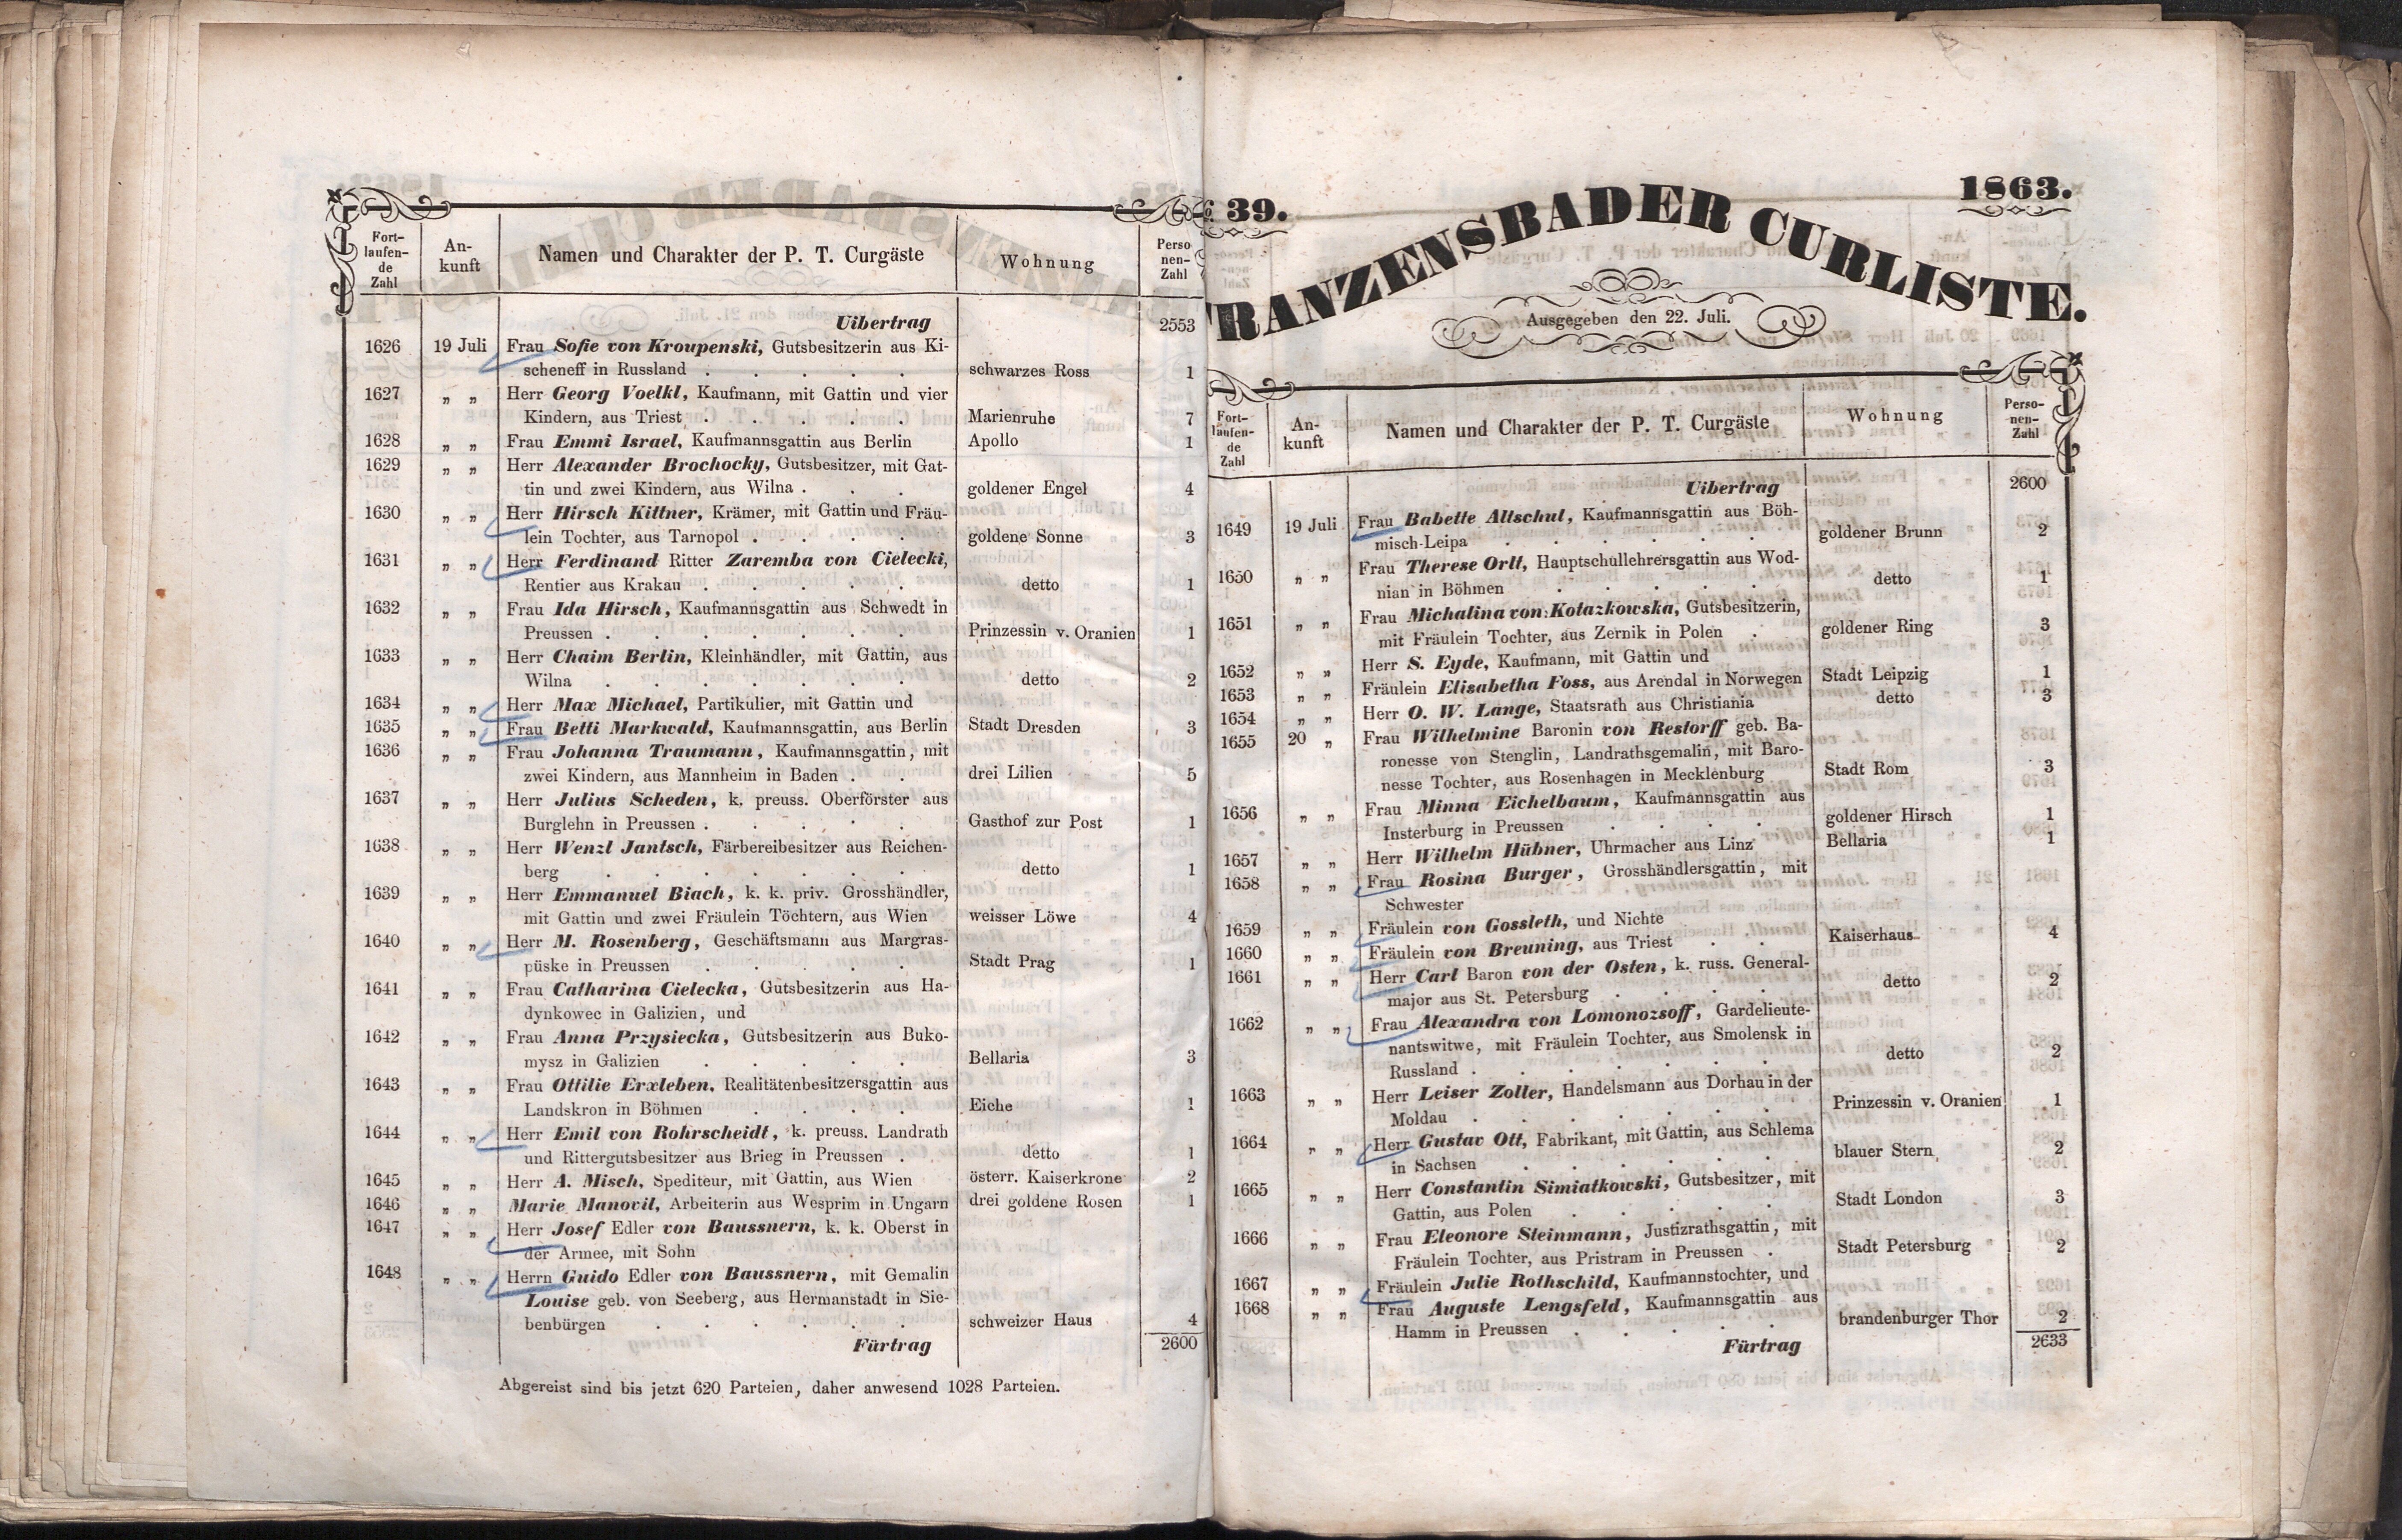 Fort-
laufen-
de
Zahl
An-
kunft
Namen und Charakter der P. T. Curgäste
Wohnung
Perso
nen-
Zahl
Uibertrag 2553
1626 19 Juli Frau Sofie von Kroupenski, Gutsbesitzerin aus Ki-
scheneff in Russland . . . . . schwarzes Ross 1
1627 „ „ Herr Georg Voelkl, Kaufmann, mit Gattin und vier
Kindern, aus Triest . . . . . Marienruhe 7
1628 „ „ Frau Emmi Israel, Kaufmannsgattin aus Berlin Apollo 1
1629 „ „ Herr Alexander Brochocky, Gutsbesitzer, mit Gat-
tin und zwei Kindern, aus Wilna . . . goldener Engel 4
1630 „ „ Herr Hirsch Kittner, Krämer, mit Gattin und Fräu-
lein Tochter, aus Tarnopol . . . . goldene Sonne 3
1631 „ „ Herr Ferdinand Ritter Zaremba von Cielecki,
Rentier aus Krakau . . . . . detto 1
1632 „ „ Frau Ida Hirsch, Kaufmannsgattin aus Schwedt in
Preussen . . . . . . . Prinzessin v. Oranien 1
1633 „ „ Herr Chaim Berlin, Kleinhändler, mit Gattin, aus
Wilna . . . . . . . detto 2
1634 „ „ Herr Max Michael, Partikulier, mit Gattin und
1635 „ „ Frau Betti Markwald, Kaufmannsgattin, aus Berlin Stadt Dresden 3
1636 „ „ Frau Johanna Traumann, Kaufmannsgattin, mit
zwei Kindern, aus Mannheim in Baden . . drei Lilien 5
1637 „ „ Herr Julius Scheden, k. preuss. Oberförster aus
Burglehn in Preussen . . . . . Gasthof zur Post 1
1638 „ „ Herr Wenzl Jantsch, Färbereibesitzer aus Reichen-
berg . . . . . . . detto 1
1639 „ „ Herr Emmanuel Biach, k. k. priv. Grosshändler,
mit Gattin und zwei Fräulein Töchtern, aus Wien weisser Löwe 4
1640 „ „ Herr M. Rosenberg, Geschäftsmann aus Margras-
püske in Preussen . . . . . Stadt Prag 1
1641 „ „ Frau Catharina Cielecka, Gutsbesitzerin aus Ha-
dynkowec in Galizien, und
1642 „ „ Frau Anna Przysiecka, Gutsbesitzerin aus Buko-
mysz in Galizien . . . . Bellaria 3
1643 „ „ Frau Ottilie Erxleben, Realitätenbesitzersgattin aus
Landskron in Böhmen . . . . Eiche 1
1644 „ „ Herr Emil von Rohrscheidt, k. preuss. Landrath
und Rittergutsbesitzer aus Brieg in Preussen . detto 1
1645 „ „ Herr A. Misch, Spediteur, mit Gattin, aus Wien österr. Kaiserkrone 2
1646 „ „ Marie Manovil, Arbeiterin aus Wesprim in Ungarn drei goldene Rosen 1
1647 „ „ Herr Josef Edler von Baussnern, k. k. Oberst in
der Armee, mit Sohn
1648 „ „ Herrn Guido Edler von Baussnern, mit Gemalin
Louise geb. von Seeberg, aus Hermanstadt in Sie-
benbürgen . . . . . . schweizer Haus 4
Fürtrag 2600
Abgereist sind bis jetzt 620 Parteien, daher anwesend 1028 Parteien.
39. 1863.
RANZENSBADER CURLISTE.
Ausgegeben den 22. Juli.
Fort-
laufen-
de
Zahl
An-
kunft
Namen und Charakter der P. T. Curgäste
Wohnung
Perso-
nen-
Zahl
Uibertrag 2600
1649 19 Juli Frau Babette Altschul, Kaufmannsgattin aus Böh-
misch-Leipa . . . . . . goldener Brunn 2
1650 „ „ Frau Therese Ortt, Hauptschullehrersgattin aus Wod-
nian in Böhmen . . . . . detto 1
1651 „ „ Frau Michalina von Kotazkowska, Gutsbesitzerin,
mit Fräulein Tochter, aus Zernik in Polen . goldener Ring 3
1652 „ „ Herr S. Eyde, Kaufmann, mit Gattin und
1653 „ „ Fräulein Elisabetha Foss, aus Arendal in Norwegen Stadt Leipzig 1
1654 „ „ Herr O. W. Lange, Staatsrath aus Christiania detto 3
1655 20 „ Frau Wilhelmine Baronin von Restorff geb. Ba-
ronesse von Stenglin, Landrathsgemalin, mit Baro-
nesse Tochter, aus Rosenhagen in Mecklenburg Stadt Rom 3
1656 „ „ Frau Minna Eichelbaum, Kaufmannsgattin aus
Insterburg in Preussen . . . . goldener Hirsch 1
1657 „ „ Herr Wilhelm Hübner, Uhrmacher aus Linz Bellaria 1
1658 „ „ Frau Rosina Burger, Grosshändlersgattin, mit
Schwester
1659 „ „ Fräulein von Gossleth, und Nichte
1660 „ „ Fräulein von Breuning, aus Triest . . Kaiserhaus 4
1661 „ „ Herr Carl Baron von der Osten, k. russ. General-
major aus St. Petersburg . . . . detto 2
1662 „ „ Frau Alexandra von Lomonozsoff, Gardelieute-
nantswitwe, mit Fräulein Tochter, aus Smolensk in
Russland . . . . . . . detto 2
1663 „ „ Herr Leiser Zoller, Handelsmann aus Dorhau in der
Moldau . . . . . . . Prinzessin v. Oranien 1
1664 „ „ Herr Gustav Ott, Fabrikant, mit Gattin, aus Schlema
in Sachsen . . . . . . blauer Stern 2
1665 „ „ Herr Constantin Simiatkowski, Gutsbesitzer, mit
Gattin, aus Polen . . . . . Stadt London 3
1666 „ „ Frau Eleonore Steinmann, Justizrathsgattin, mit
Fräulein Tochter, aus Pristram in Preussen . Stadt Petersburg 2
1667 „ „ Fräulein Julie Rothschild, Kaufmannstochter, und
1668 „ „ Frau Auguste Lengsfeld, Kaufmannsgattin aus
Hamm in Preussen . . . . . brandenburger Thor 2
Fürtrag 2633